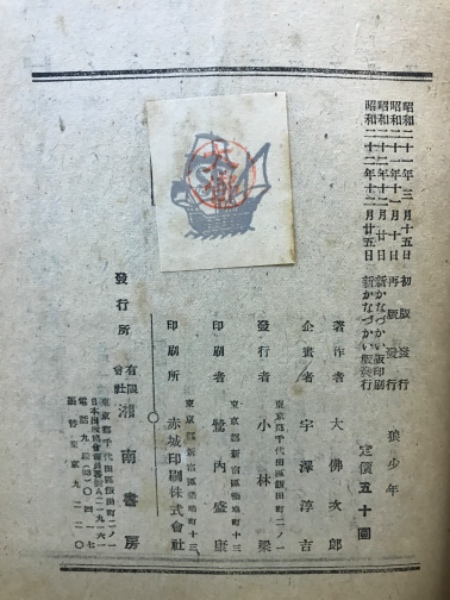 昭和二十一年三月十五日 初版發行
昭和二十一年十一月十日 再版發行
昭和二十二年十二月廿日 新かなづかい版印刷
昭和二十二年十二月廿五日 新かなづかい版發行
狼少年
定價五十圓
著作者 大佛次郎
企畫者 宇澤淳吉
東京都千代田區飯田町二ノ一
發行者 小林梁
東京都新宿區 町十三
印刷者 鷲內盛康
東京都新宿區 町十三
印刷所 赤城印刷株式會社
發行所 有限會社 湘南書房
東京都千代田區飯田町二ノ一
大佛